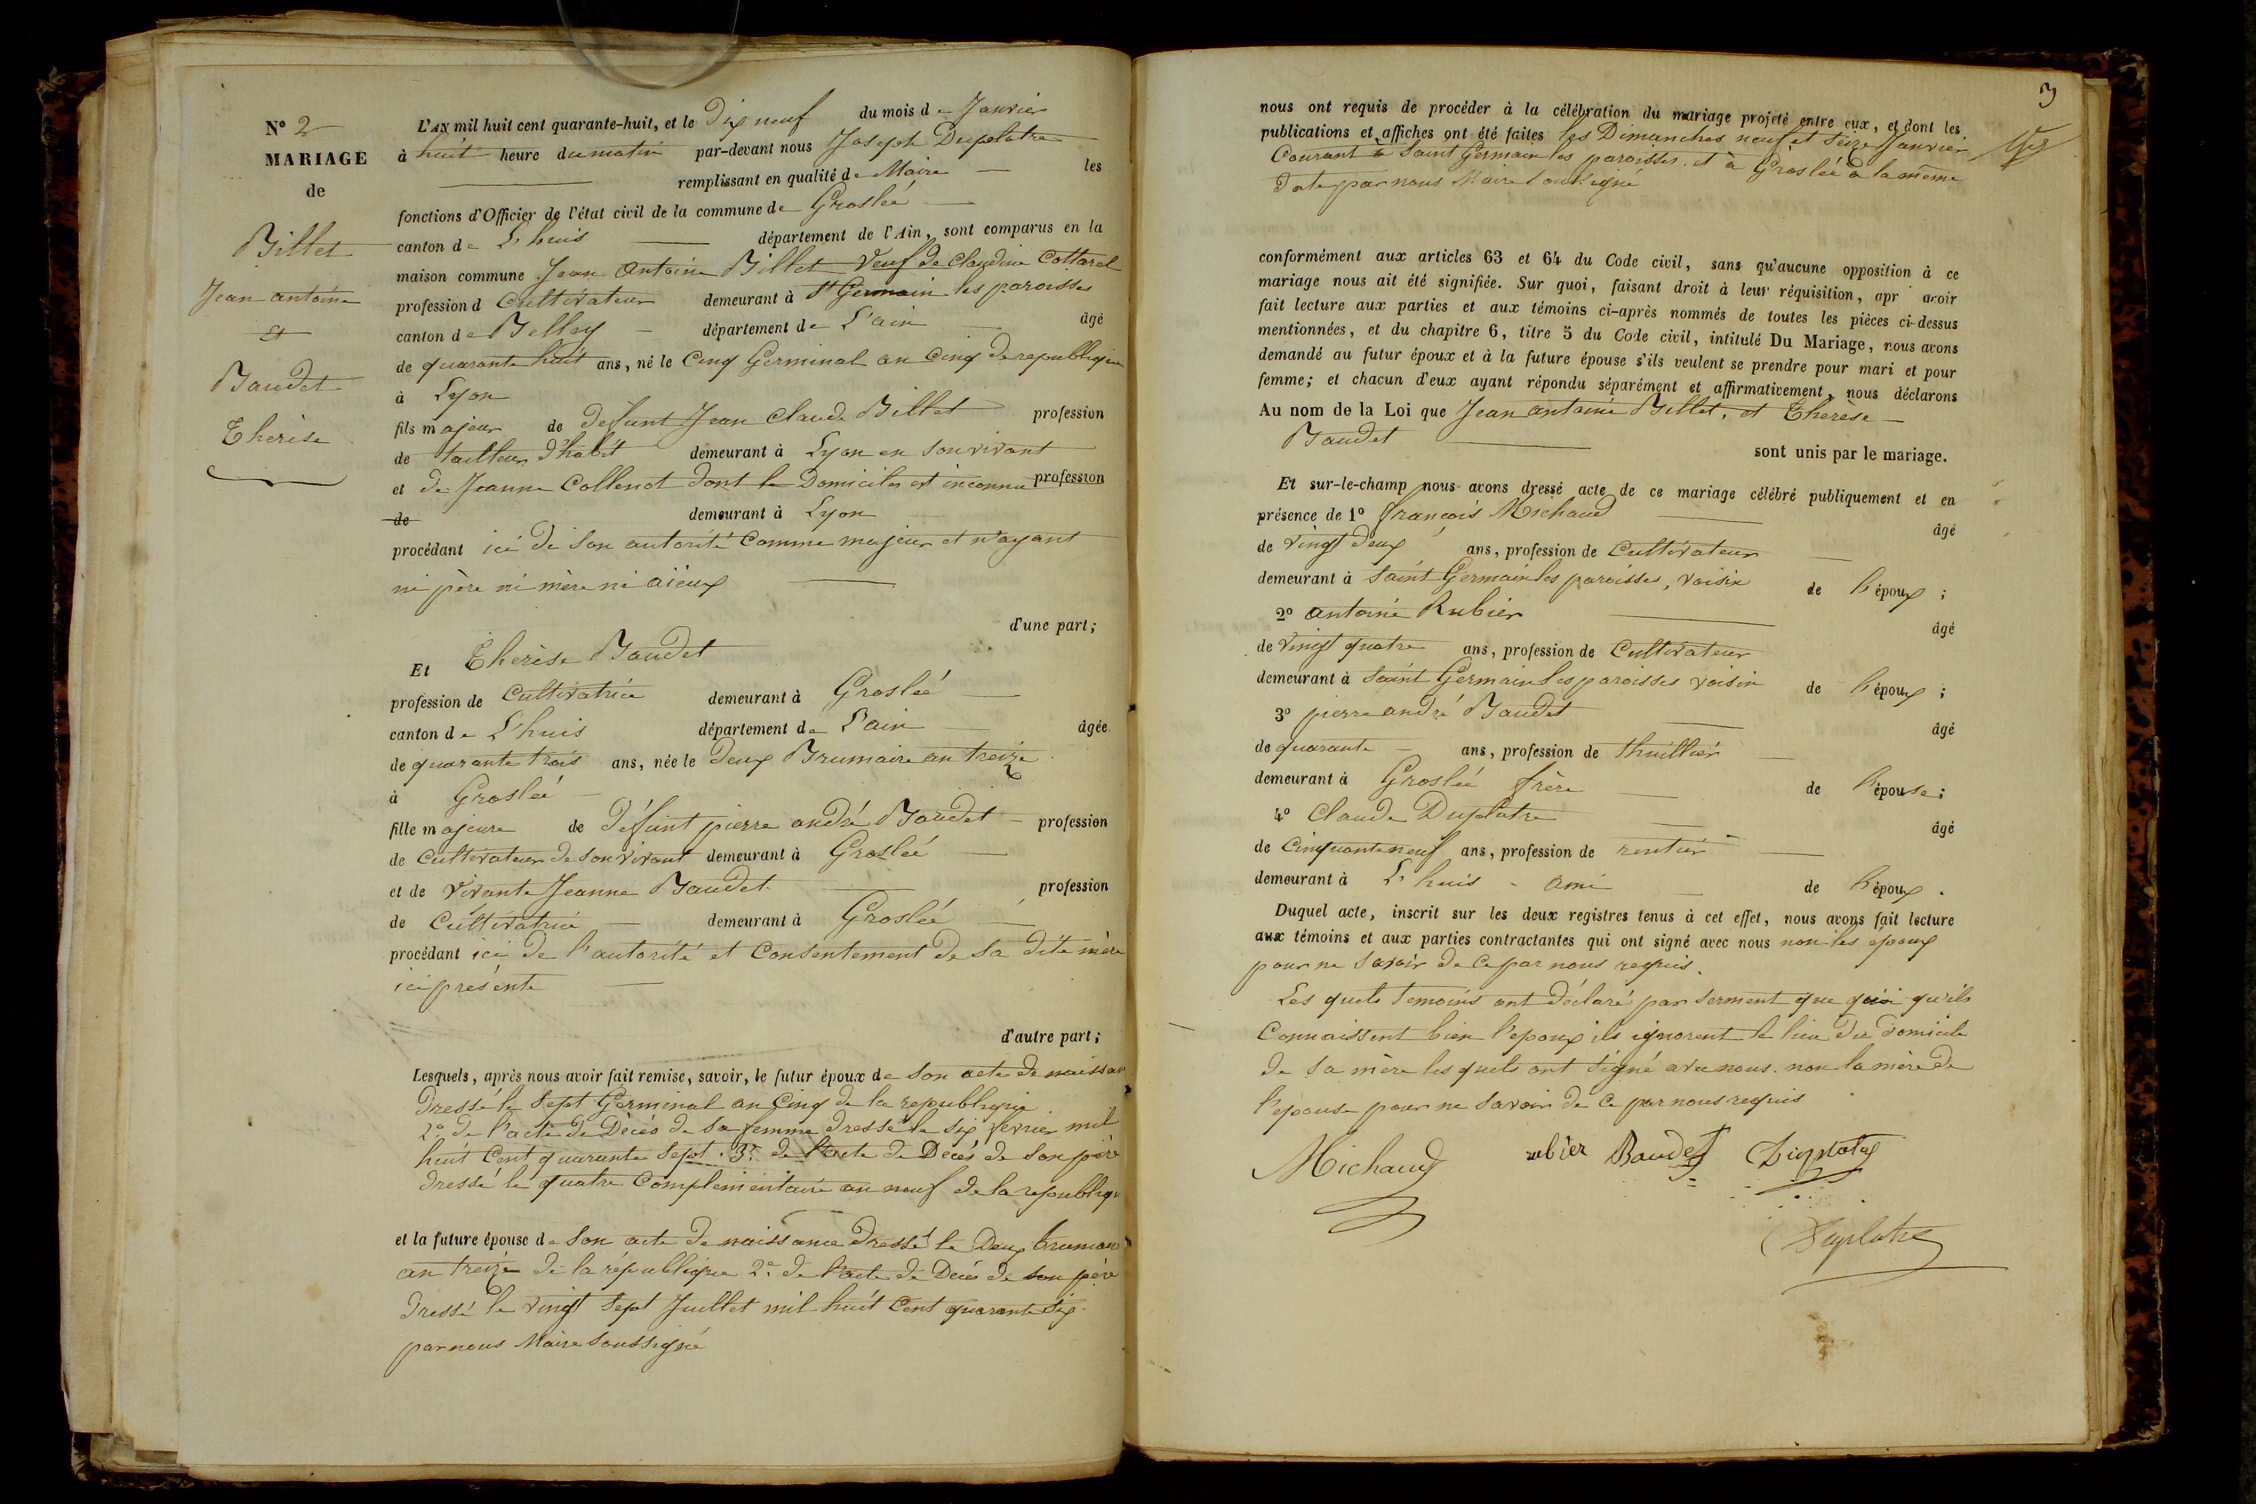 N° 2
MARIAGE
de
Billet
Jean antoine
et
Baudet
Therèse
L'AN mil huit cent quarante-huit, et le Dix neuf du mois de Janvier
à huit heure du matin par-devant nous Joseph Duplatre
remplissant en qualité de Maire les
fonctions d'Officier de l'état civil de la commune de Groslée
canton de L'huis département de l'Ain, sont comparus en la
maison commune Jean Antoine Billet Veuf de Claudine Cottarel
profession d Cultivateur demeurant à St Germain les paroisses
canton de Belley département de L'ain âgé
de quarante huit ans, né le Cinq Germinal an Cinq de republique
à Lyon
fils majeur de deffunt Jean Claude Billet profession
de tailleur d'habit demeurant à Lyon en son vivant
et de Jeanne Collenot dont le Domiciles est inconnu profession
de demeurant à Lyon
procédant ici de son autorité comme majeur et n'ayant
ni père ni mère ni aïeux
d'une part;
Et Therèse Baudet
profession de Cultivatrice demeurant à Groslée
canton de L'huis département de L'ain âgée
de quarante trois ans, née le deux Brumaire an treize
à Groslée
fille majeure de déffunt pierre andré Baudet profession
de Cultivateur de son vivant demeurant à Groslée
et de Vivante Jeanne Baudet profession
de Cultivatrice demeurant à Groslée
procédant ici de l'autorité et Consentement de sa dite mère
ici présente
d'autre part;
Lesquels, après nous avoir fait remise, savoir, le futur époux de son acte de naissan
Dressé le Sept Germinal an Cinq de la republique
2° de l'acte de Décés de sa femme dressé le six fevrier mil
huit Cent quarante Sept. 3° de l'acte de Décés de son père
dressé le quatre Complémentaire an neuf de la republiqu
et la future épouse de son acte de naissance dressé le Deux brumair
an treize de la république 2° de l'acte de Décès de son père
dressé le vingt Sept Juillet mil huit Cent quarante six
par nous Maire Soussigné
3
nous ont requis de procéder à la célébration du mariage projeté entre eux, et dont les
publications et affiches ont été faites les Dimanches neuf et Seize Janvier
Courant à Saint Germain les paroisses. et à Groslée à la même
date par nous Maire Soussigné
conformément aux articles 63 et 64 du Code civil, sans qu'aucune opposition à ce
mariage nous ait été signifiée. Sur quoi, faisant droit à leur réquisition, apr avoir
fait lecture aux parties et aux témoins ci-après nommés de toutes les pièces ci-dessus
mentionnées, et du chapitre 6, titre 5 du Code civil, intitulé Du Mariage, nous avons
demandé au futur époux et à la future épouse s'ils veulent se prendre pour mari et pour
femme; et chacun d'eux ayant répondu séparément et affirmativement, nous déclarons
Au nom de la Loi que Jean antoine Billet, et Therèse
Baudet
sont unis par le mariage.
Et sur-le-champ nous avons dressé acte de ce mariage célébré publiquement et en
présence de 1° françois Michaud âgé
de vingt deux ans, profession de Cultivateur
demeurant à Saint Germain les paroisses, voisin de l'époux;
2° antoine Rubier âgé
de vingt quatre ans, profession de Cultivateur
demeurant à Saint Germain les paroisses voisin de l'époux;
3° pierre andré Baudet âgé
de quarante ans, profession de thuillier
demeurant à Groslée frère de l'épouse;
4° Claude Duplatre âgé
de Cinquante neuf ans, profession de rentier
demeurant à L'huis ami de l'époux.
Duquel acte, inscrit sur les deux registres tenus à cet effet, nous avons fait lecture
aux témoins et aux parties contractantes qui ont signé avec nous non les époux
pour ne Savoir de Ce par nous requis.
Les quels Temoins ont déclaré par serment que quoi qu'ils
Connaissent bien l'epoux ils ignorent le lieu du domicile
de sa mère les quels ont signé avec nous. non la mère de
l'epouse pour ne savoir de Ce par nous requis
Michaud rubier Baudet
Duplatre